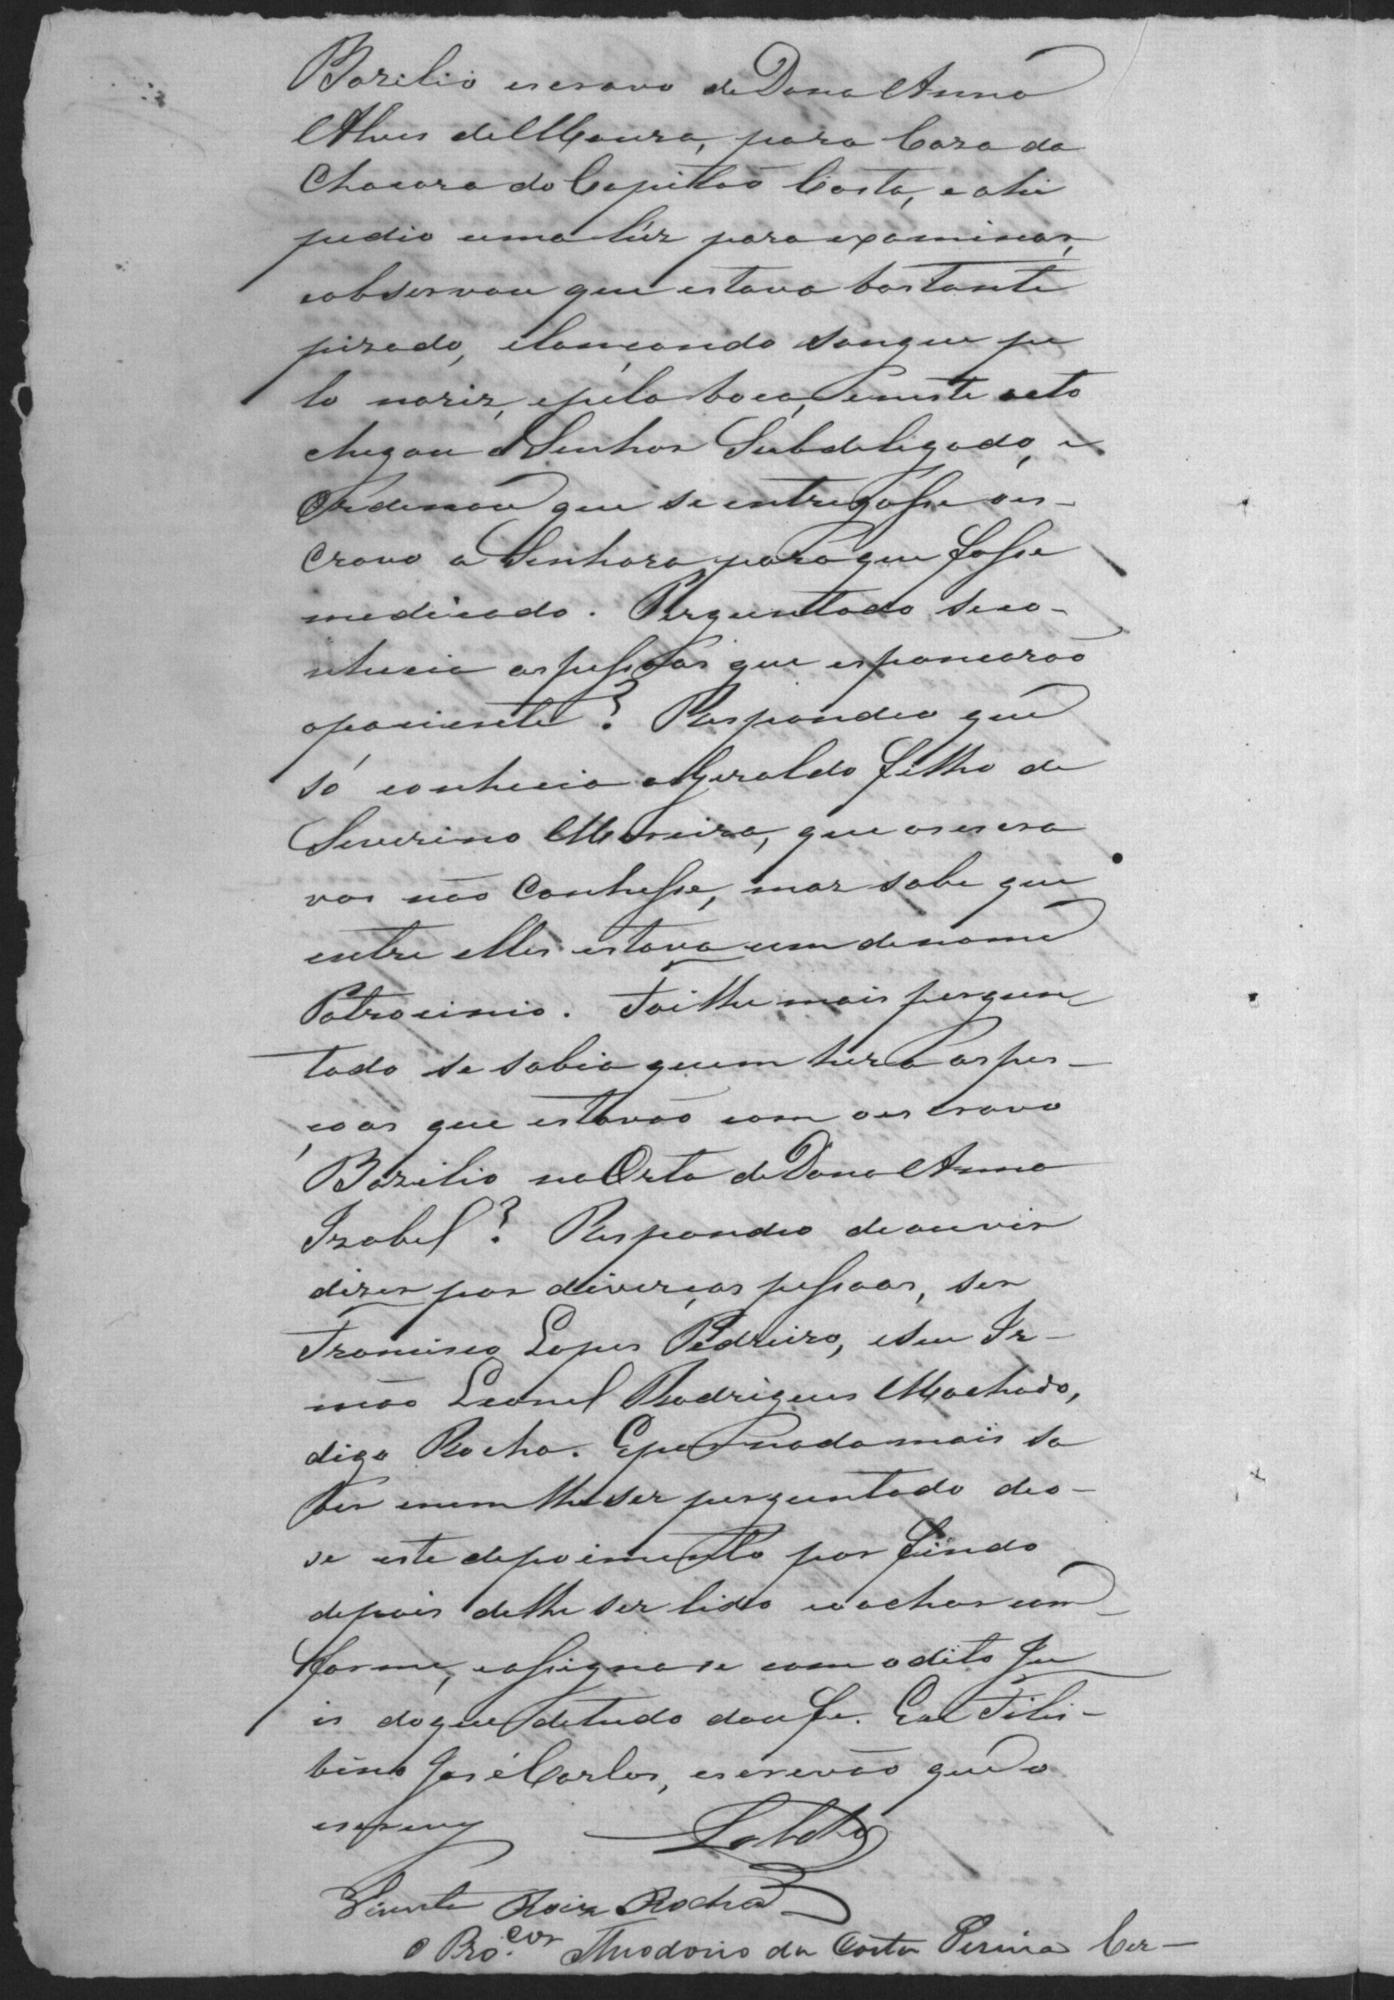 Bazilio escravo de Dona Anna
Alves de Moura, para Caza da
Chacara do Capitão Costa, e ahi
pedio uma lús para examinar,
e observou que estava bastante
pizado, e lançando sangue pe
lo nariz, e pela boca, e neste acto
chegou o Senhor Subdelegado, e
Ordenou que se entregasse o es-
cravo a Senhora para que fosse
medicado. Perguntado se co-
nhecia as pessoas que espancarão
o paciente? Respondeo que
só conhecia a Geraldo filho de
Severino Moreira, que os escra
vos não Conhesse, mas sabe que
entre elles estava um de nome
Patrocinio. Foi lhe mais pergun
tado se sabia quem hera as pes-
çoas que estavão com o escravo
Bazilio na Orta de Dona Anna
Izabel? Respondeo de ouvir
dizer por diverças pessoas, ser
Francisco Lopes Pedreiro, e seu Ir-
mão Leonel Rodrigues Machado,
digo Rocha. E por nada mais sa
ber e nem lhe ser perguntado deo-
se este depoimento por findo
depois de lhe ser lido e o achar com
forme, e assigna se com o dito Ju
is do que de tudo dou fe. Eu Felis-
bino José Carlos, escrevão que o
escrevy
Vicente Roiz Rocha
O Pro.cor Theodorio da Costa Pereira Cer-